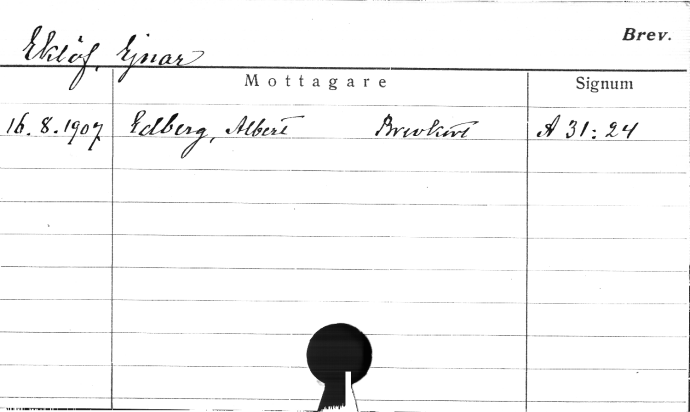 Brev.
Eklöf, Ejnar
Mottagare Signum
16.8.1907 Edberg, Albert Brevkort A 31:24